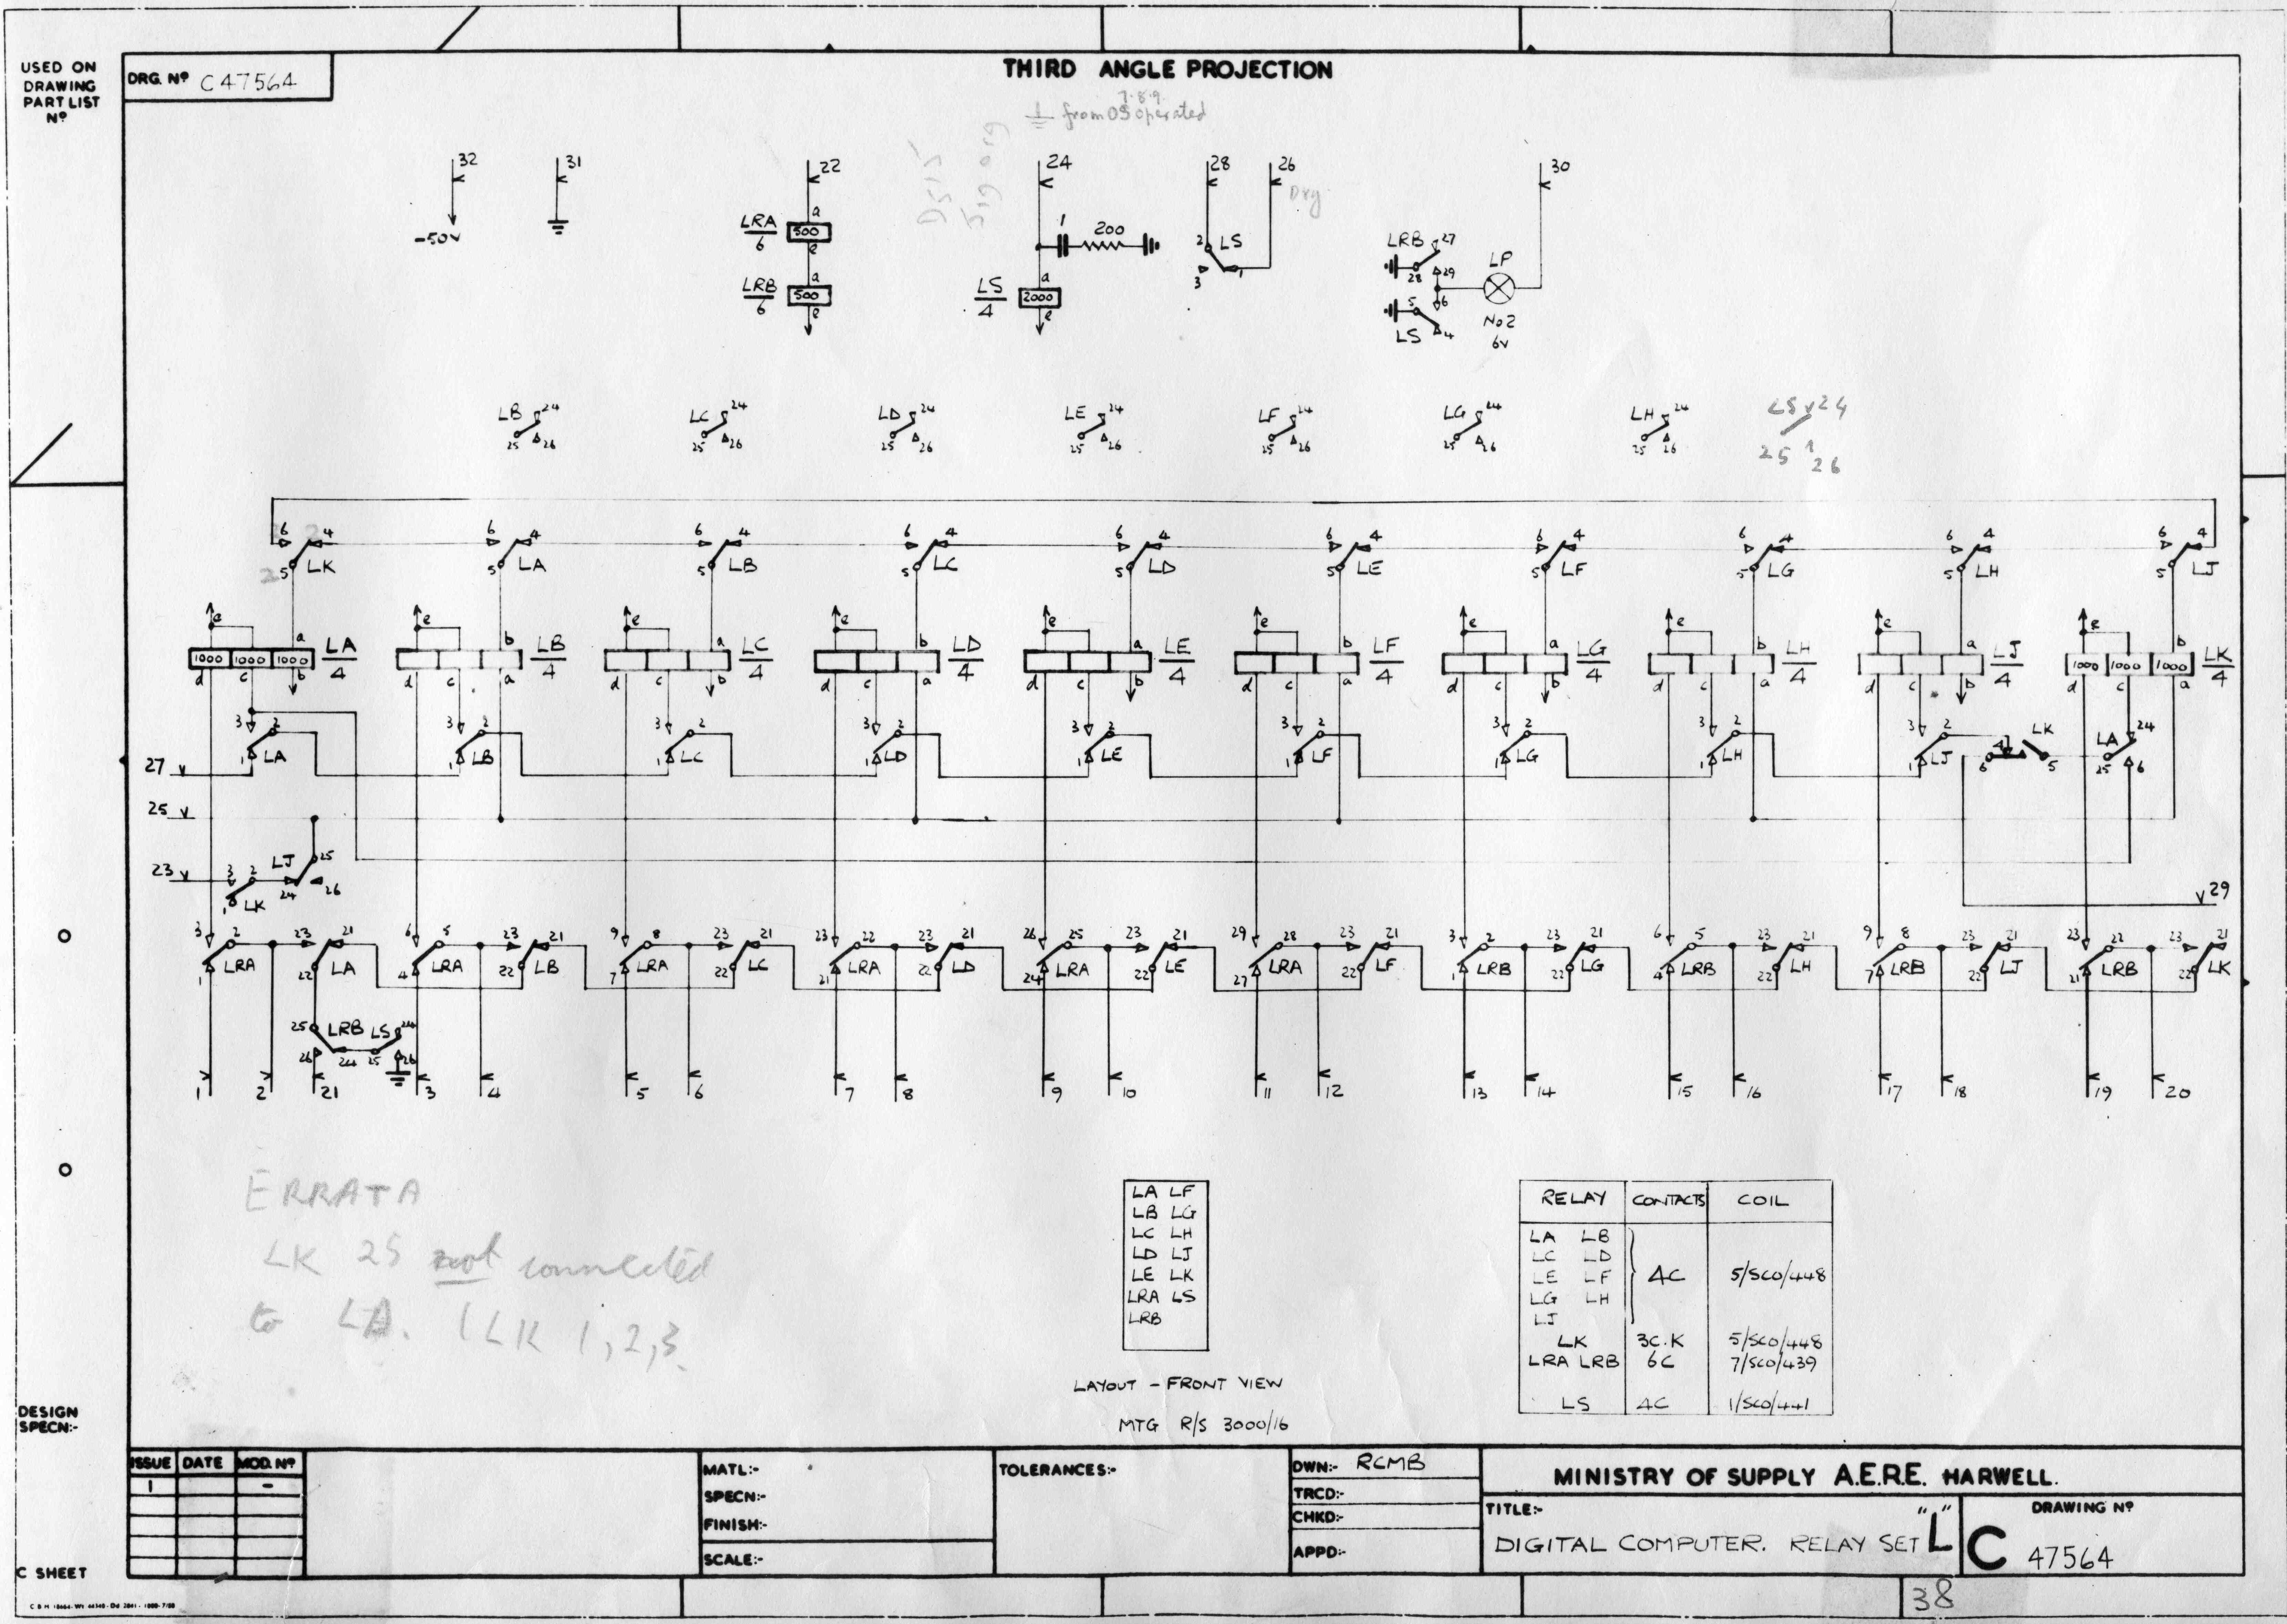 USED ON
DRAWING
PART LIST
Nº
DRG. Nº C47564
THIRD ANGLE PROJECTION
7·8·9.
from OS operated
32 31 22 24 28 26 30
Drg
-50V
LRA/6 a 500 e
LRB/6 a 500 e
1 200
LS/4 a 2000 e
2 LS 3 1
LRB 27 28 29
LP
No2
6V
5 6 LS 4
LB 24 25 26
LC 24 25 26
LD 24 25 26
LE 24 25 26
LF 24 25 26
LG 24 25 26
LH 24 25 26
LS 24 25 26
6 4 5 LK
6 4 5 LA
6 4 5 LB
6 4 5 LC
6 4 5 LD
6 4 5 LE
6 4 5 LF
6 4 5 LG
6 4 5 LH
6 4 5 LJ
e a 1000 1000 1000 LA/4 d c b
e b LB/4 d c a
e a LC/4 d c b
e b LD/4 d c a
e a LE/4 d c b
e b LF/4 d c a
e a LG/4 d c b
e b LH/4 d c a
e a LJ/4 d c b
e b 1000 1000 1000 LK/4 d c a
3 2 1 LA
3 2 1 LB
3 2 1 LC
3 2 1 LD
3 2 1 LE
3 2 1 LF
3 2 1 LG
3 2 1 LH
3 2 1 LJ
LK 4 6 5
LA 24 25 6
27
25
23
3 2 1 LK
LJ 25 24 26
29
3 2 1 LRA 23 21 22 LA
6 5 4 LRA 23 21 22 LB
9 8 7 LRA 23 21 22 LC
23 22 21 LRA 23 21 22 LD
26 25 24 LRA 23 21 22 LE
29 28 27 LRA 23 21 22 LF
3 2 1 LRB 23 21 22 LG
6 5 4 LRB 23 21 22 LH
9 8 7 LRB 23 21 22 LJ
23 22 21 LRB 23 21 22 LK
25 LRB LS 24
26 24 25 26
1 2 21 3 4 5 6 7 8 9 10 11 12 13 14 15 16 17 18 19 20
ERRATA
LK 25 not connected
to LA. (LK 1,2,3.
LA LF
LB LG
LC LH
LD LJ
LE LK
LRA LS
LRB
LAYOUT - FRONT VIEW
MTG R/S 3000/16
RELAY CONTACTS COIL
LA LB
LC LD
LE LF 4C 5/SCO/448
LG LH
LJ
LK 3C.K 5/SCO/448
LRA LRB 6C 7/SCO/439
LS 4C 1/SCO/441
DESIGN
SPECN:-
C SHEET
ISSUE DATE MOD. Nº
1 -
MATL:-
SPECN:-
FINISH:-
SCALE:-
TOLERANCES:-
DWN:- RCMB
TRCD:-
CHKD:-
APPD:-
MINISTRY OF SUPPLY A.E.R.E. HARWELL.
TITLE:-
DIGITAL COMPUTER. RELAY SET "L"
DRAWING Nº
C 47564
38